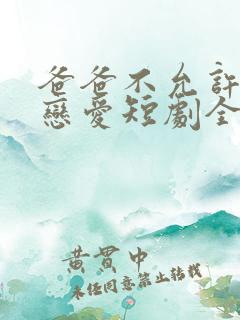 爸爸不允許
戀愛短劇全
黃貫中
未经同意禁止转载